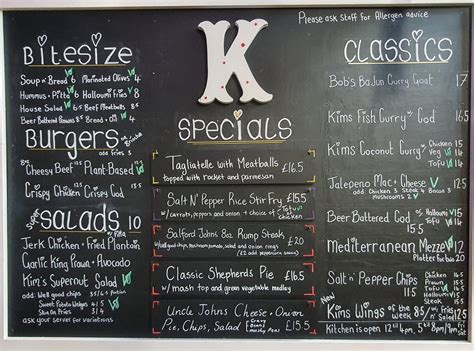 Please ask Staff For Allergen advice
K
Bitesize
Soup n' Bread 6 Marinated Olives 4
Hummus + Pitta 6 Halloumi Fries 8
House Salad 6 Beef Meatballs 8
Beer Battered Prawns 8 Bread
Burgers
add fries 3
Cheesy Beef 15 Plant-Based
Crispy Chicken Crispy Cod
Super Salads 10
Jerk Chicken + Fried Plantain
Garlic King Prawn + Avocado
Kim's Supernut Salad
add: Well good chips 3.5/4.5
Sweet Potato Wedges
Skin On Fries 3/4
ask your server for variations
Specials
Tagliatelle with Meatballs £16.5
topped with rocket and parmesan
Salt N' Pepper Rice Stir Fry £15.5
w/ carrots, peppers and onion + choice of Tofu
Salford Johns 8oz Rump Steak £20
w/ well good chips, mushroom, tomato, salad and onion rings
Classic Shepherds Pie £16.5
w/ mash top and green vegetable medley
Uncle Johns Cheese + Onion
Pie, Chips, Salad Gravy Beans mushy Peas £15.5
Classics
Bob's Bajun Curry Goat 17
Kims Fish Curry w/ Cod 16
Kims Coconut Curry w/ Chicken 15 Veg 15 Tofu 16
Jalepeno Mac + Cheese 12
add Chicken 3 Steak 5 Bacon 3
mushrooms 2
Beer Battered w/ Halloumi 15 Tofu 15 Cod 16
Mediterranean Mezze
Platter for two 20
Salt n' Pepper Chips Chicken 15 Prawns 16.5 Halloumi 15 Tofu 15 Steak
New
Kims Wings of the week 8.5/
Kitchen is open 12-4pm, 5.30-8pm